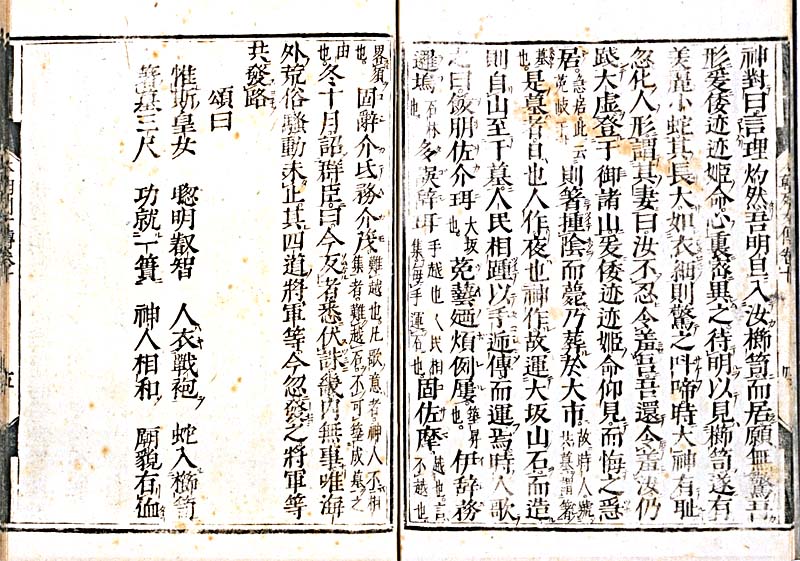 神對曰言理灼然吾明旦入汝櫛笥而居願無驚吾
形爰倭迹迹姬命心裏密異之待明以見櫛笥遂有
美麗小蛇其長大如衣紐則驚之叫啼時大神有恥
忽化人形謂其妻曰汝不忍令羞吾吾還令羞汝仍
踐大虛登于御諸山爰倭迹迹姬命仰見而悔之急
居急居此云菟岐于則箸撞陰而薨乃葬於大市故時人號其墓謂箸
墓也是墓者日也人作夜也神作故運大坂山石而造
則自山至于墓人民相踵以手遞傳而運焉時人歌
之曰飫明佐介珥大坂也菟藝廼煩例屢築昇也伊辞務
邏塢石村也多誤辞珥手越也人民相集以手運石也固佐摩不越也言
固辭介氏務介茂難越也凡歌意者神人不相集者難越石不可築成墓之
由也冬十月詔群臣曰今反者悉伏誅畿內無事唯海
外荒俗騷動未止其四道將軍等今忽發之將軍等
共發路
頌曰
惟斯皇女 聰明叡智 人衣戰袍 蛇入櫛笥
蕢基三尺 功就一簣 神人相和 廟貌右祔